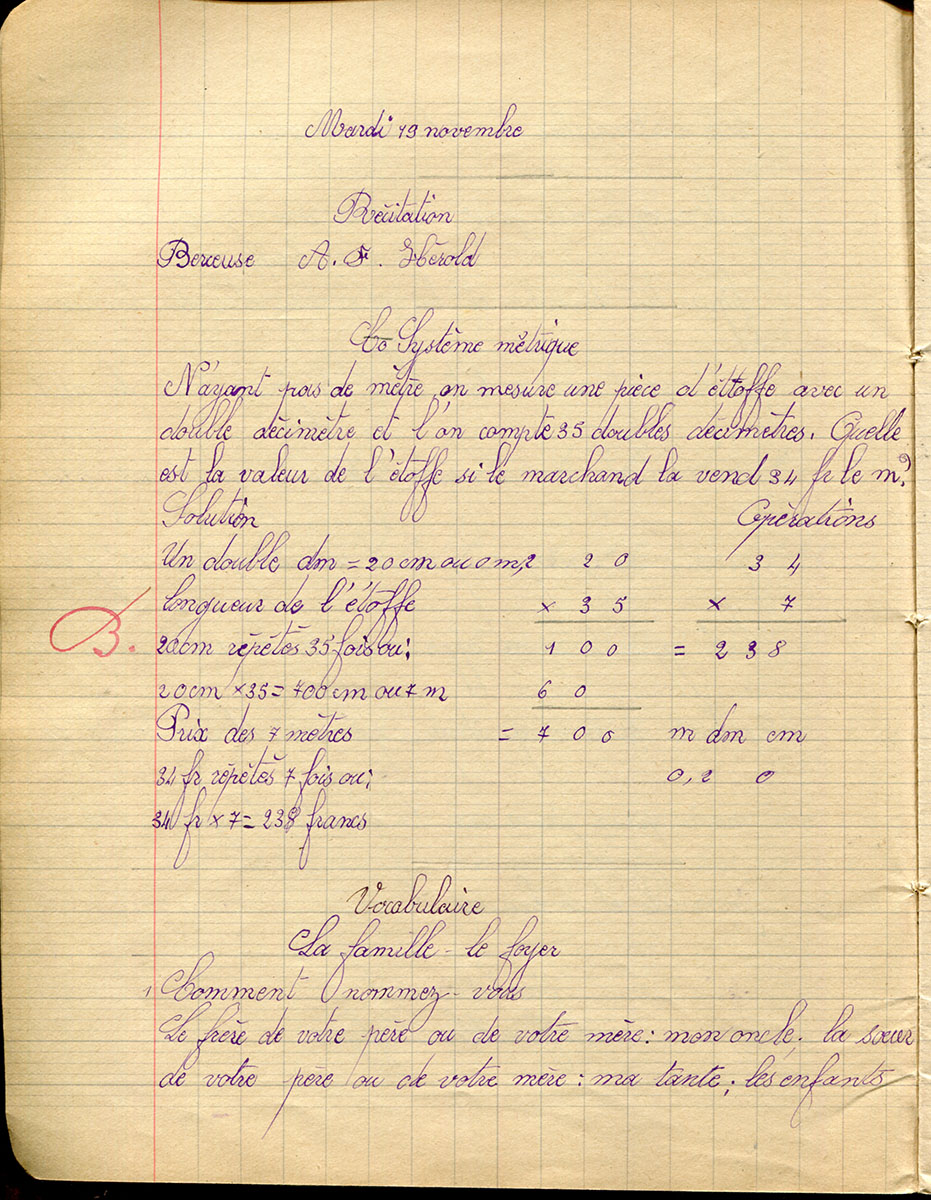 Mardi 19 novembre
Récitation
Berceuse A. F. Hérold
Système métrique
N'ayant pas de mètre on mesure une pièce d'éttoffe avec un
double décimètre et l'on compte 35 doubles décimètres. Quelle
est la valeur de l'étoffe si le marchand la vend 34 fr le m?
Solution Opérations
Un double dm = 20cm ou 0m,2 20 34
longueur de l'étoffe × 35 × 7
20cm répétés 35 fois ou: 100 = 238
20cm × 35 = 700cm ou 7 m 60
Prix des 7 mètres = 700 m dm cm
34 fr répétés 7 fois ou: 0,2 0
34 fr × 7 = 238 francs
B.
Vocabulaire
La famille - le foyer
1 Comment nommez-vous
Le frère de votre père ou de votre mère: mon oncle. la sœur
de votre père ou de votre mère: ma tante; les enfants